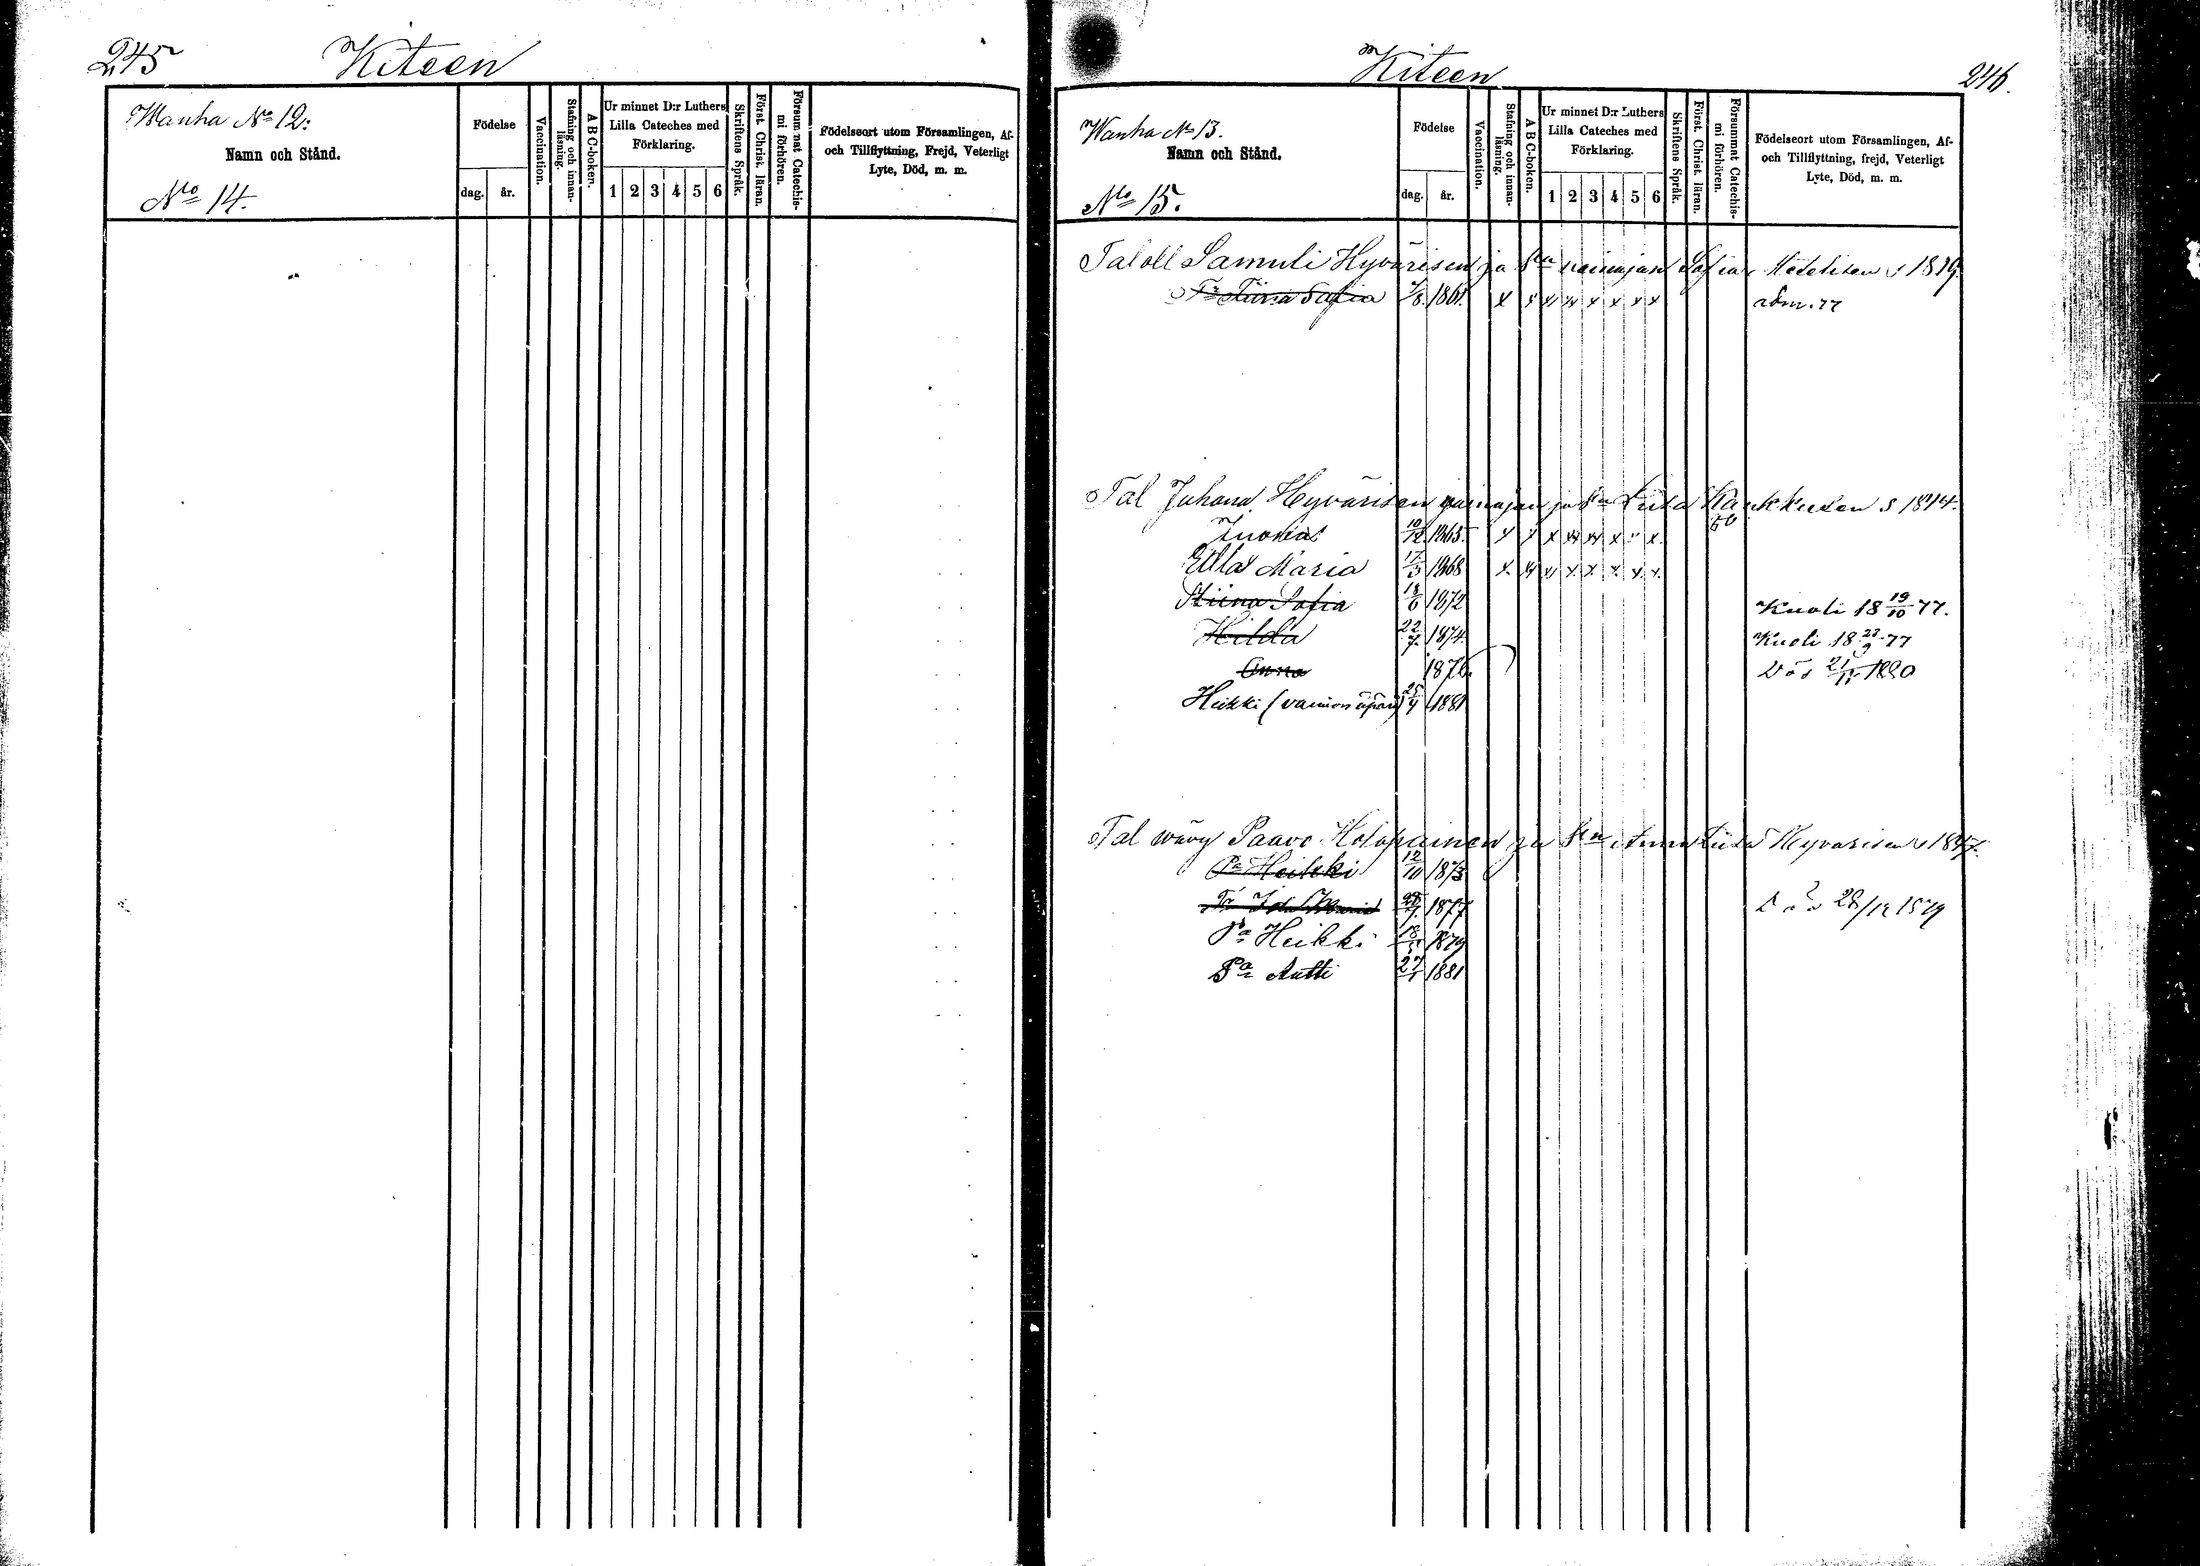 245
Kiteen
Wanha No 12.
Namn och Stånd.
No 14.
Födelse
dag.
år.
Vaccination.
Stafning och innan-
läsning.
A B C-boken.
Ur minnet D:r Luthers
Lilla Cateches med
Förklaring.
1 2 3 4 5 6
Skriftens Språk.
Först. Christ. läran.
Försummat Catechis-
mi förhören.
Födelseort utom Församlingen, Af-
och Tillflyttning, Frejd, Veterligt
Lyte, Död, m. m.
Kiteen
246.
Wanha No 13.
Namn och Stånd.
No 15.
Födelse
dag.
år.
Vaccination.
Stafning och innan-
läsning.
A B C-boken.
Ur minnet D:r Luthers
Lilla Cateches med
Förklaring.
1 2 3 4 5 6
Skriftens Språk.
Först. Christ. läran.
Försummat Catechis-
mi förhören.
Födelseort utom Församlingen, Af-
och Tillflyttning, frejd, Veterligt
Lyte, Död, m. m.
Taloll Samuli Hyvärisen ja sen vaimojan Sofia 1819
Tr Stiina Sofia 1861. x x x x x x x x adm. 77
Tal Juhana Hyvärisen ja sen Liisa Kaukkusen s 1844.
Tuomas 10/12 1865. x x x x x x x
Ulla Maria 17/3 1868 x x x x x x x x
Stiina Sofia 18/6 1872 Kuoli 18 19/10 77.
Hilda 22/7 1874 Kuoli 18 23/9 77
Anna 1876. Död 1880
Heikki (vaimon äpärä) 25/4 1881
Tal wävy Paavo Holopainen ja sen Anna Liisa Hyvärisen
Pa Heikki 12/10 1873
Tr Ida Maria 1877 Död 28/12 1879
Pa Heikki 1879
Pa Antti 1881